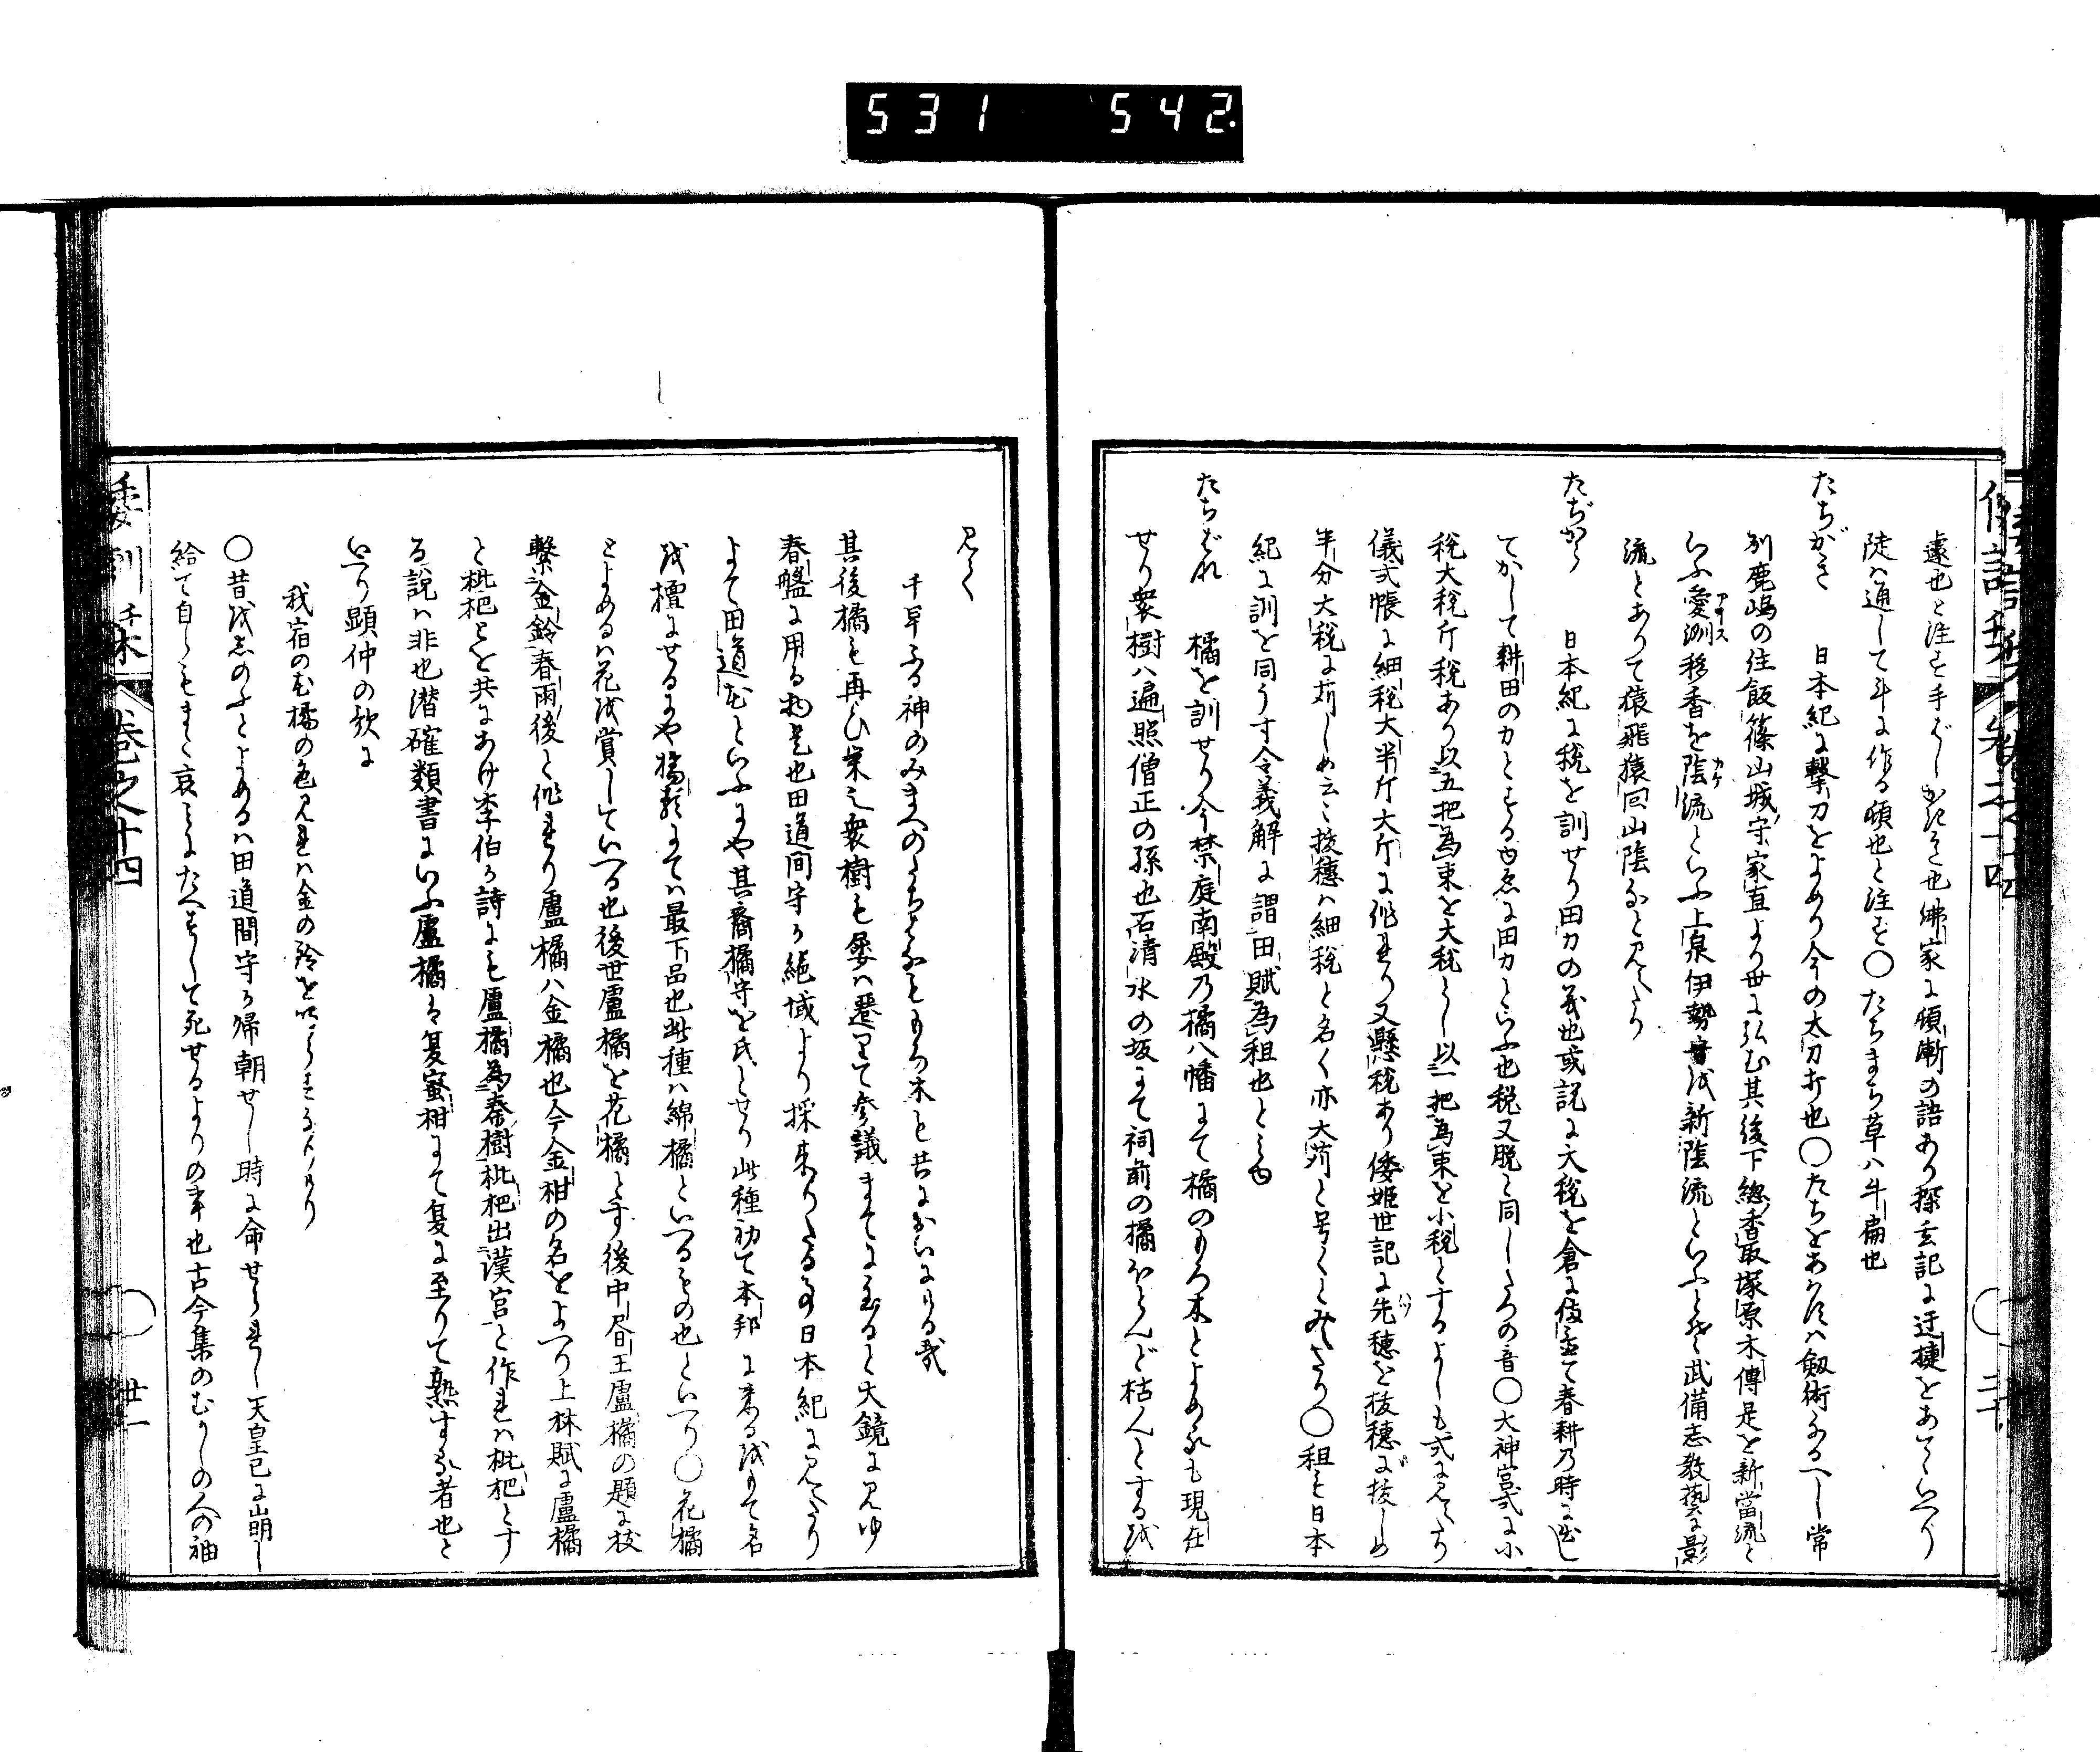 531 542
遽也と注せり手ばしかき也佛家に頓漸の語あり探玄記に迂捷をあてゝいへり
陡ハ通して斗に作る頓也と注せり〇たちまち草ハ牛扁也
たちがき 日本紀に撃刀をよめり今の太刀打也〇たちをあはすハ劔術なるへし常
刕鹿嶋の住飯篠山城守家直より世に弘む其後下総香取塚原木傳是を新當流と
いふ愛洲移香を陰流といふ上泉伊勢守が新陰流といふとぞ武備志教藝に影
流とありて猿飛猿回山陰なと見えたり
たぢから 日本紀に税を訓せり田力の義也或説に大税を倉に儲置て春耕乃時に出し
てかして耕田の力とするゆゑに田力といふ也税又脱と同したつの音〇大神宮式に小
税大税斤税あり以五把為束を大税とし以一把為束を小税とするよしも式に見えたり
儀式帳に細税大半斤大斤に作れり又懸税あり倭姫世記に先穂を抜穂に抜しめ
半分大税に苅しめ云々抜穂ハ細税と名く亦大苅と号くとみえたり〇租を日本
紀に訓を同うす令義解に謂田賦為租也とみゆ
たちばな 橘を訓せり今禁庭南殿乃橘八幡にて橘のもろ木とよめるも現在
せり衆樹ハ遍照僧正の孫也石清水の坂にて祠前の橘ほとんど枯んとするを
見て
千早ふる神のみまへのたちはなももろ木も共においにける哉
其後橘も再ひ栄え衆樹も屡ハ遷りて参議まてに至ると大鏡に見ゆ
春盤に用る物是也田道間守か絶域より採来りたる事日本紀に見えたり
よて田道花といふにや其裔橘守を氏とせり此種初て本邦に来るをもて名
を擅にせるにや橘類にてハ最下品也此種ハ綿橘といへるもの也といへり〇花橘
とよめるハ花を賞していへる也後世盧橘を花橘とす後中書王盧橘の題に枝
繋金鈴春雨後と作れり盧橘ハ金橘也今金柑の名をよへり上林賦に盧橘
と枇杷とを共にあけ李伯か詩にも盧橘為秦樹枇杷出漢宮と作れハ枇杷とす
る説ハ非也潜確類書にいふ盧橘ハ夏蜜柑にて夏に至りて熟する者也と
いへり顕仲の歌に
我宿の花橘の色見れハ金の鈴をならすなりけり
〇昔をしのふとよめるハ田道間守か帰朝せし時に命せられし天皇已に崩し
給て自らもまた哀しみにたへすして死せるよりの事也古今集のむかしの人の袖
倭訓栞 巻之十四 廿一